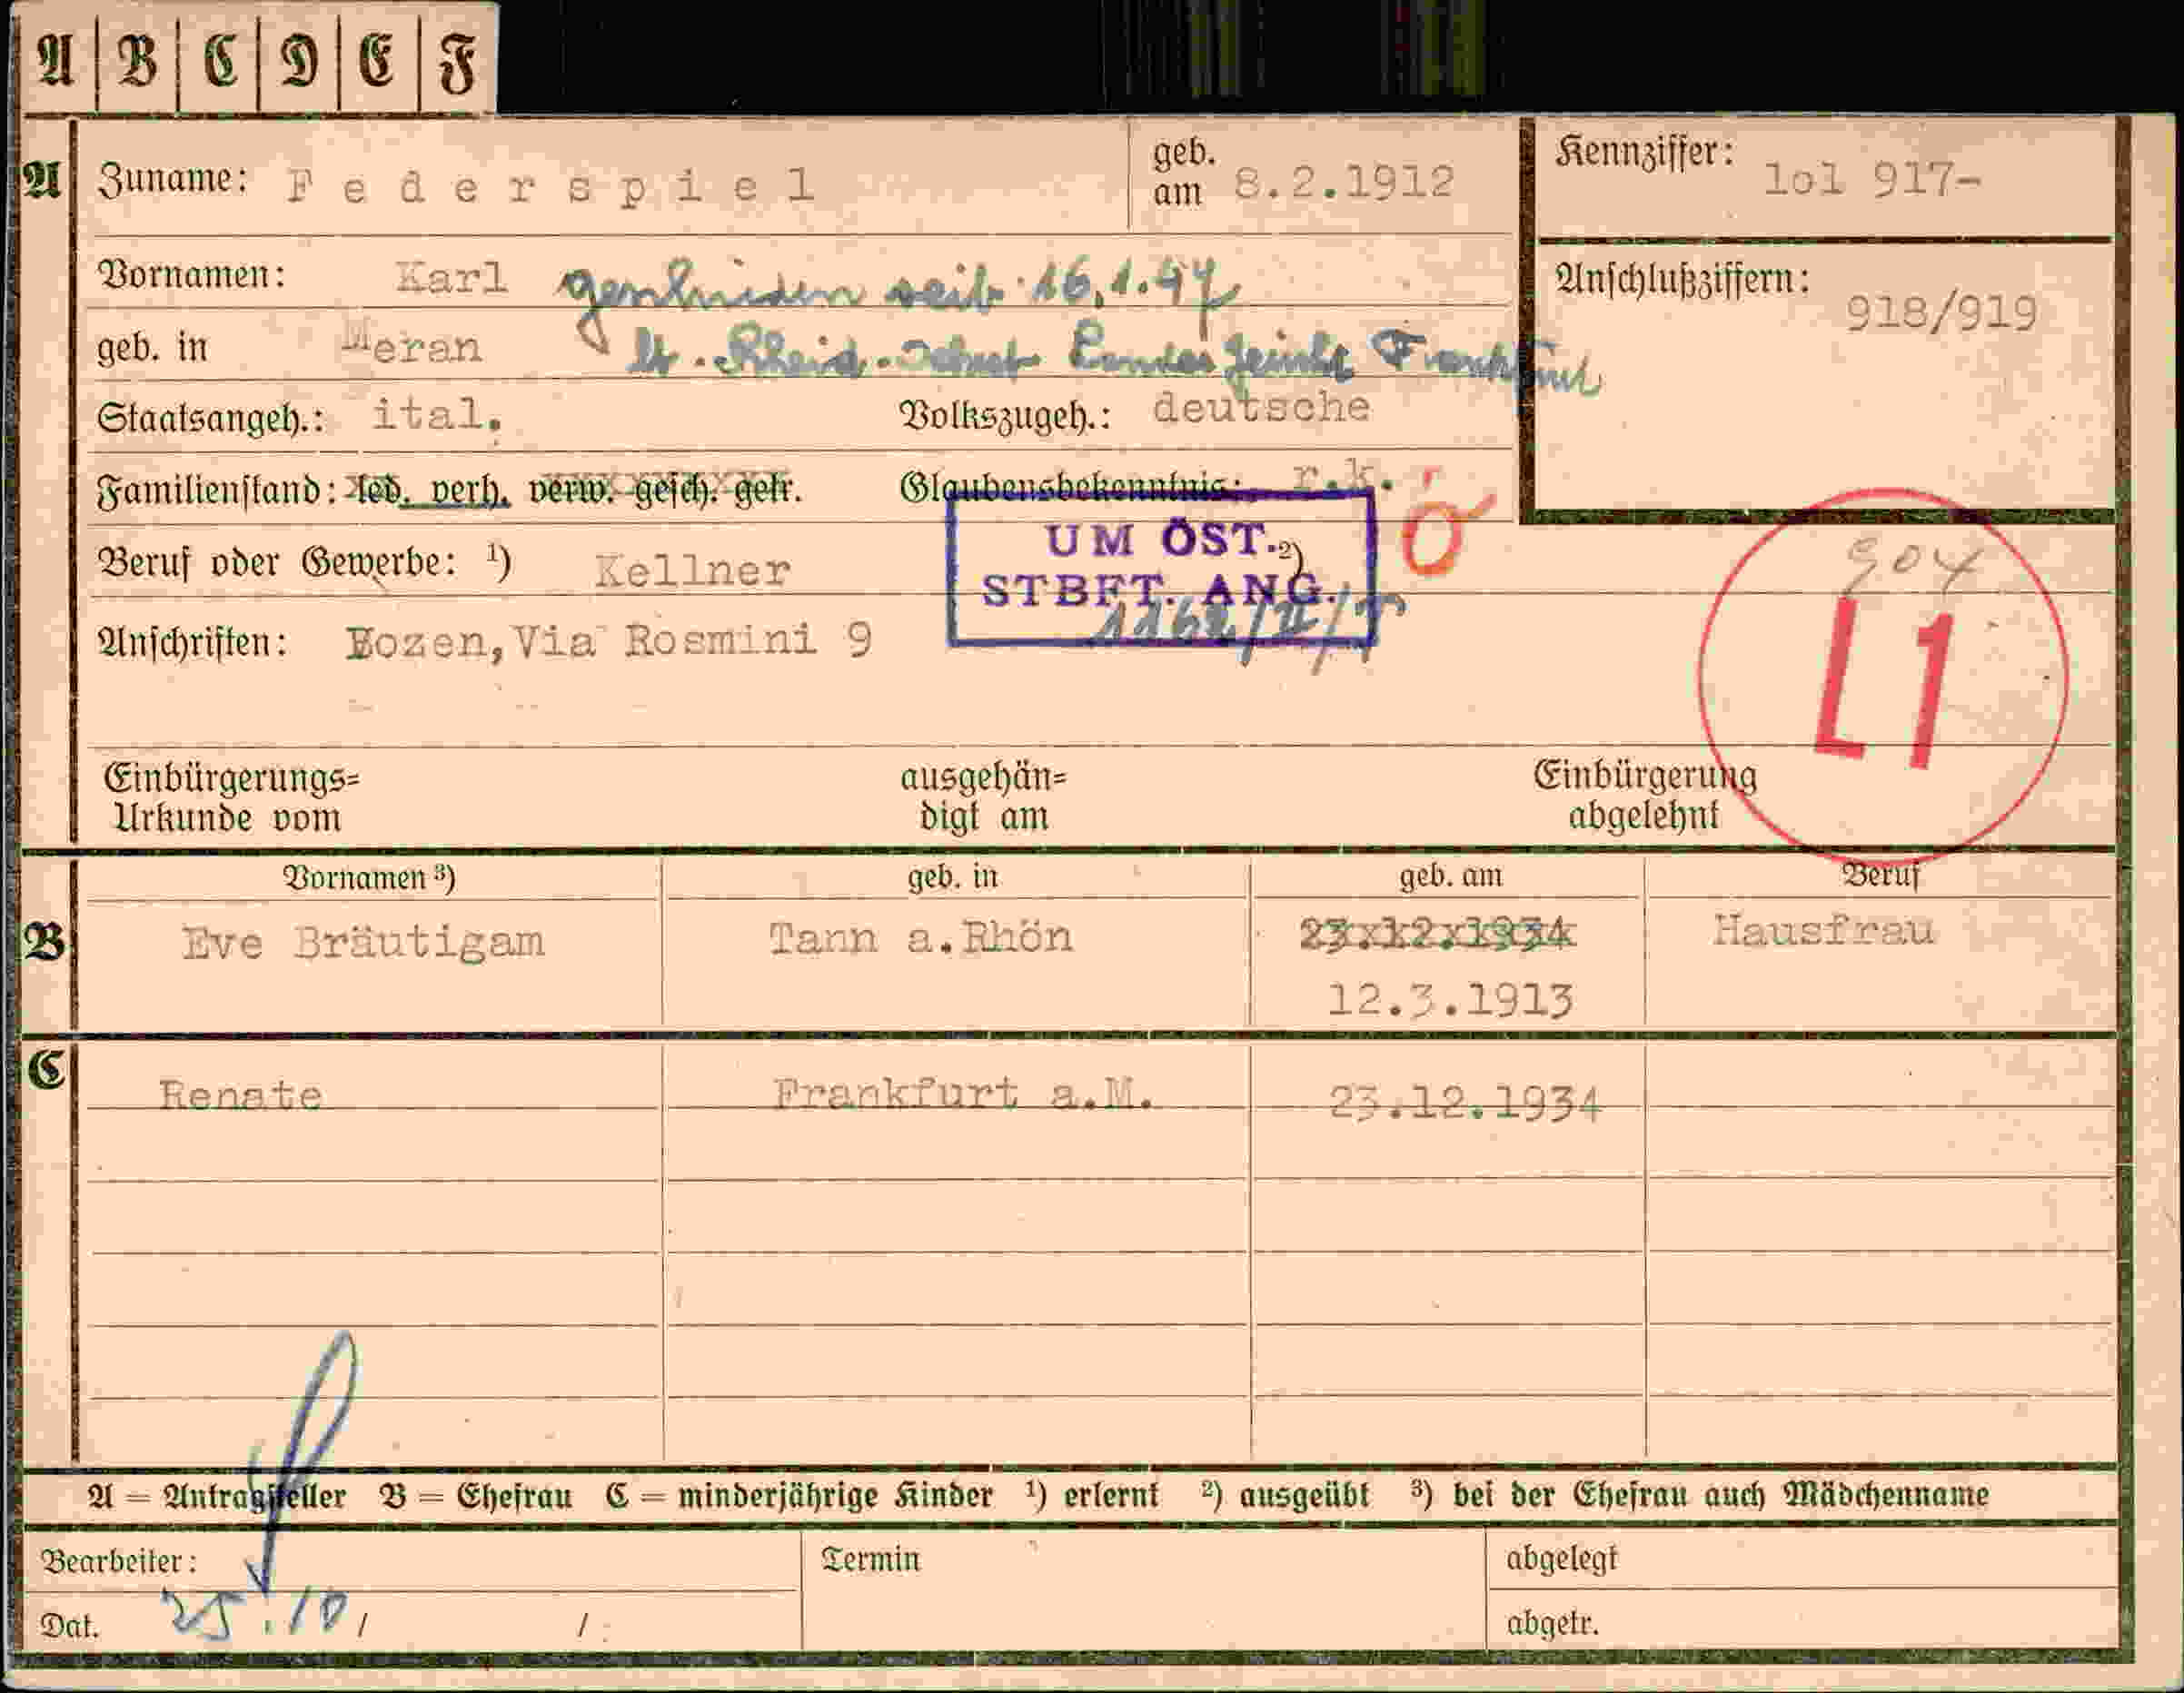 A B C D E F
A Zuname: Federspiel geb. am 8.2.1912 Kennziffer: lol 917-
Vornamen: Karl geschieden seit 16.1.47 Anschlußziffern: 918/919
geb. in Meran lt. Landesgericht Frankfurt
Staatsangeh.: ital. Volkszugeh.: deutsche
Familienstand: led. verh. verw. gesch. getr. Glaubensbekenntnis: r.k. Ö
Beruf oder Gewerbe: 1) Kellner 2)
UM ÖST.
STBFT. ANG.
904
L1
Anschriften: Bozen, Via Rosmini 9
Einbürgerungs= ausgehän= Einbürgerung
Urkunde vom digt am abgelehnt
Vornamen 3) geb. in geb. am Beruf
B Eve Bräutigam Tann a.Rhön 23.12.1934 Hausfrau
12.3.1913
C Renate Frankfurt a.M. 23.12.1934
A = Antragsteller B = Ehefrau C = minderjährige Kinder 1) erlernt 2) ausgeübt 3) bei der Ehefrau auch Mädchenname
Bearbeiter: Termin abgelegt
Dat. 25.10 / / abgetr.